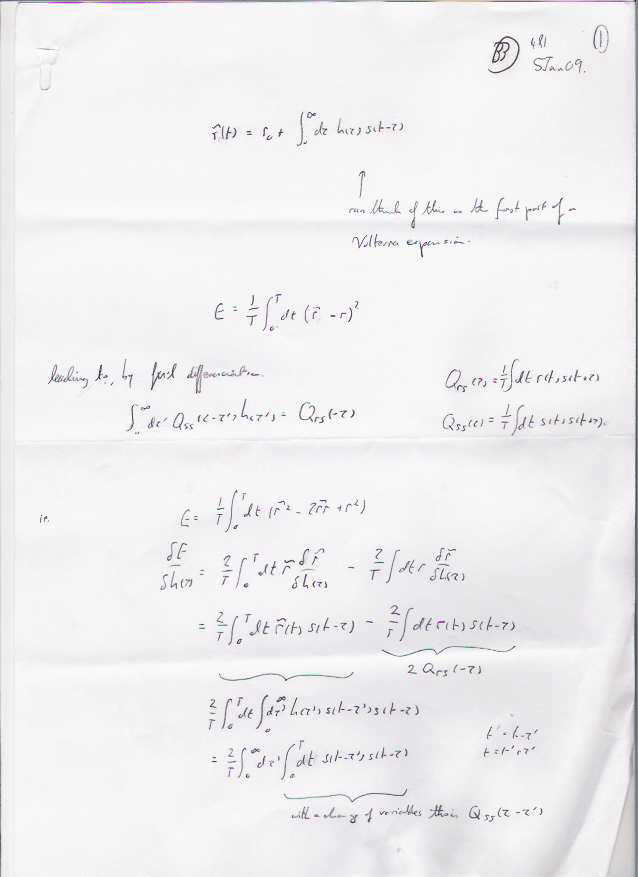 BB 481 ①
5Jan09.
r̂(t) = r₀ + ∫₀^∞ dτ h(τ) s(t-τ)
↑
can think of this as the first part of a
Volterra expansion.
E = 1/T ∫₀^T dt (r̂ - r)²
leading to, by fnl differentiation
Q_rs(τ) = 1/T ∫dt r(t) s(t+τ)
∫₀^∞ dτ' Q_ss(τ-τ') h(τ') = Q_rs(-τ)
Q_ss(τ) = 1/T ∫dt s(t) s(t+τ).
ie. E = 1/T ∫₀^T dt (r̂² - 2r̂r + r²)
δE/δh(τ) = 2/T ∫₀^T dt r̂ δr̂/δh(τ) - 2/T ∫dt r δr̂/δh(τ)
= 2/T ∫₀^T dt r̂(t) s(t-τ) - 2/T ∫dt r(t) s(t-τ)
2 Q_rs(-τ)
2/T ∫₀^T dt ∫₀^∞ dτ' h(τ') s(t-τ') s(t-τ)
t' = t-τ'
= 2/T ∫₀^∞ dτ' ∫₀^T dt s(t-τ') s(t-τ)
t = t'+τ'
with a change of variables this is Q_ss(τ-τ')